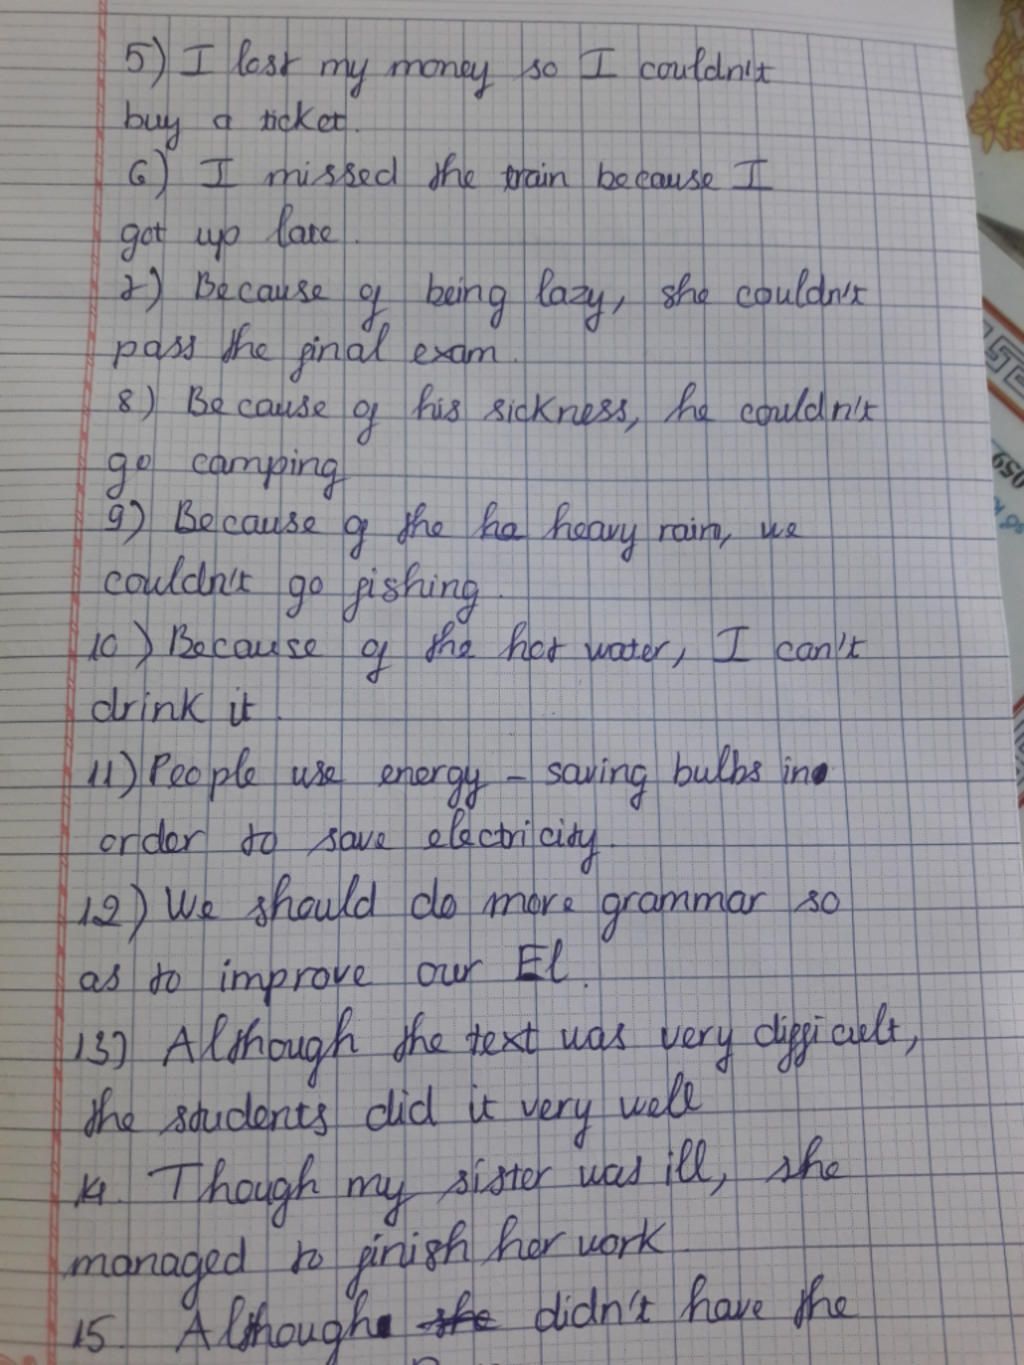 5) I lost my money so I couldn't
buy a ticket.
6) I missed the train because I
got up late.
7) Because of being lazy, she couldn't
pass the final exam.
8) Because of his sickness, he couldn't
go camping
9) Because of the he heavy rain, we
couldn't go fishing.
10) Because of the hot water, I can't
drink it.
11) People use energy - saving bulbs in
order to save electricity.
12) We should do more grammar so
as to improve our El.
13) Although the text was very difficult,
the students did it very well
14. Though my sister was ill, she
managed to finish her work
15. Although she didn't have the
059